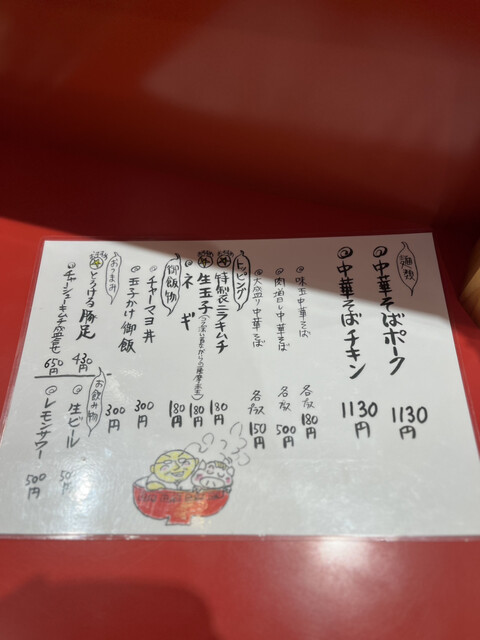 麺類
中華そばポーク 1130円
中華そばチキン 1130円
味玉中華そば 各種 180円
肉増し中華そば 各種 500円
大盛り中華そば 各種 150円
トッピング
特製ニラキムチ 180円
生玉子 180円
ネギ 180円
御飯物
チャーマヨ丼 300円
玉子かけ御飯 300円
おつまみ
とろける豚足 430円
チャーシューキムチ盛合せ 650円
お飲み物
生ビール 円
レモンサワー 500円